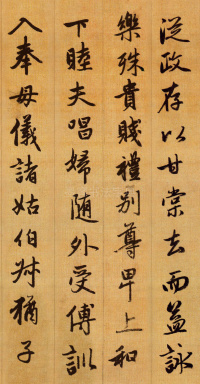 從政存以甘棠去而益詠
樂殊貴賤禮別尊卑上和
下睦夫唱婦隨外受傅訓
入奉母儀諸姑伯叔猶子